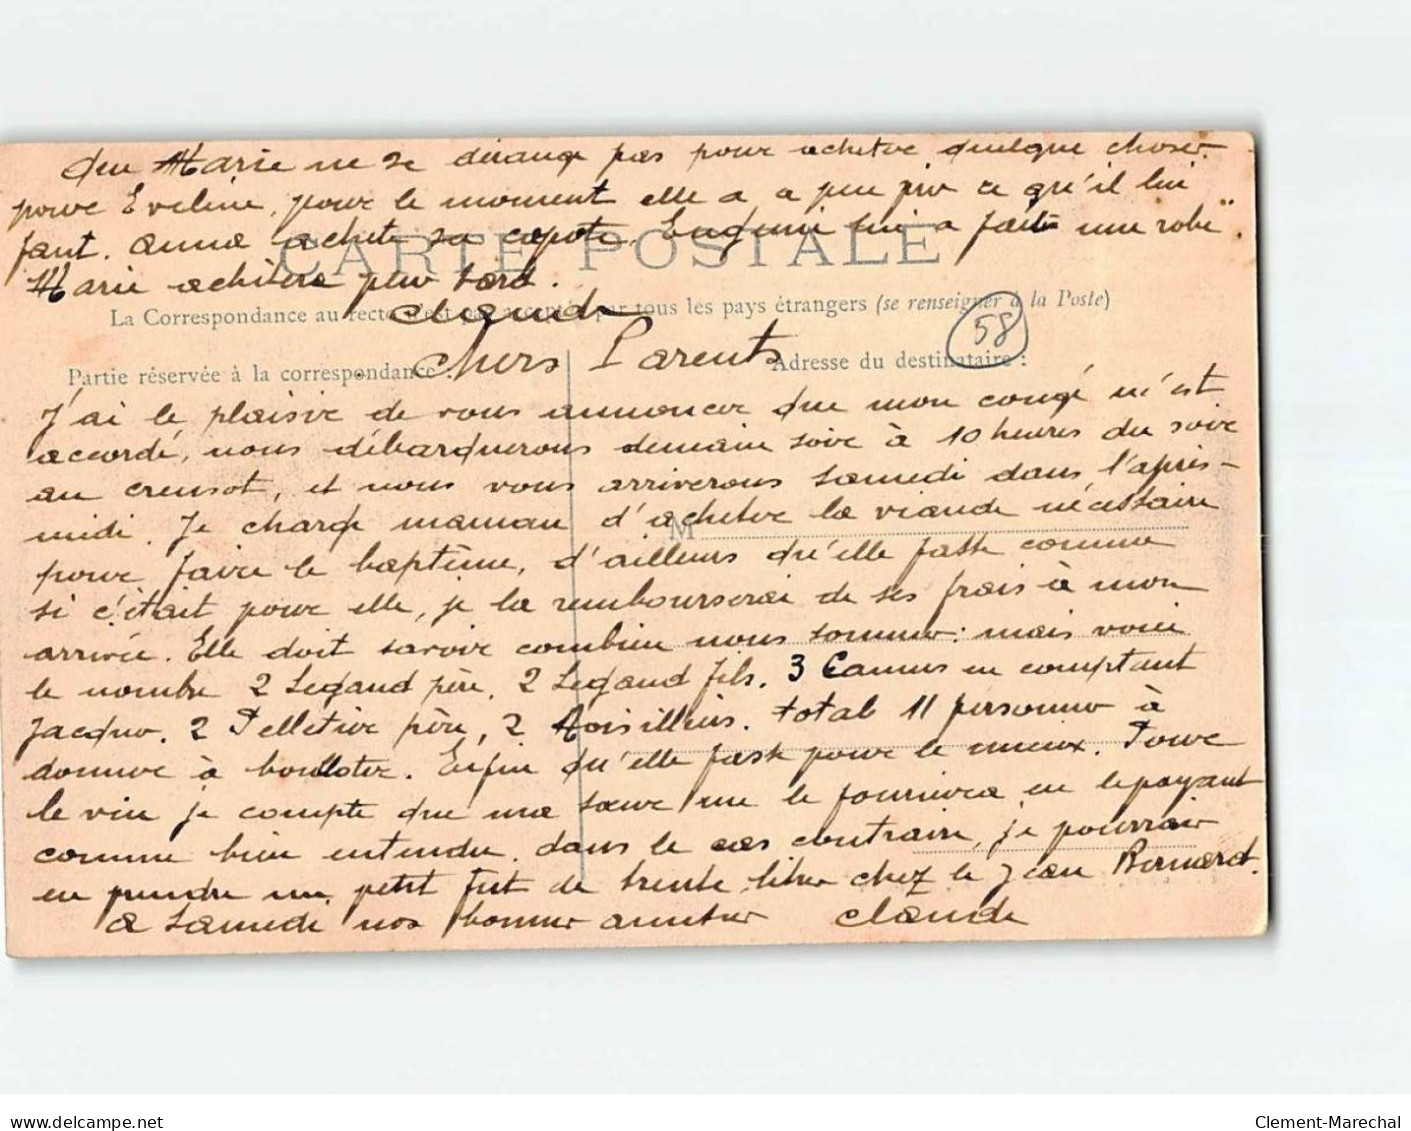 Que Marie ne se dérange pas pour acheter quelque chose
pour Eveline, pour le moment elle a a peu près ce qu'il lui
faut. Anna achète sa capote, Eugénie lui a faite une robe.
CARTE POSTALE
Marie achètera plus tard.
Claude
La Correspondance au recto n'est pas acceptée par tous les pays étrangers (se renseigner à la Poste)
58
Chers Parents
Partie réservée à la correspondance. Adresse du destinataire :
J'ai le plaisir de vous annoncer que mon congé m'est
accordé, nous débarquerons demain soir à 10 heures du soir
au creusot, et nous vous arriverons samedi dans l'après-
midi. Je charge maman d'acheter la viande nécessaire
M
pour faire le baptême, d'ailleurs qu'elle fasse comme
si c'était pour elle, je la rembourserai de ses frais à mon
arrivée. Elle doit savoir combien nous sommes: mais voici
le nombre 2 Legaud père, 2 Legaud fils. 3 Camus en comptant
Jacques. 2 Pelletier père, 2 total 11 personnes à
donner à boulloter. Enfin qu'elle fasse pour le mieux. Pour
le vin je compte que ma sœur me le fournira en le payant
comme bien entendu. dans le cas contraire, je pourrais
en prendre un petit fut de trente litres chez le Jean Bernard.
a samedi nos bonnes amities Claude
delcampe.net
Clement-Marechal